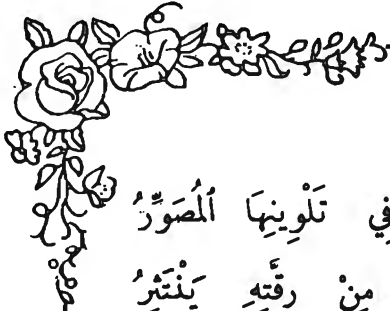 فِي تَلْوِينِهَا ٱلْمُصَوِّرُ
مِنْ رِقَّتِهِ يَنْتَثِرُ